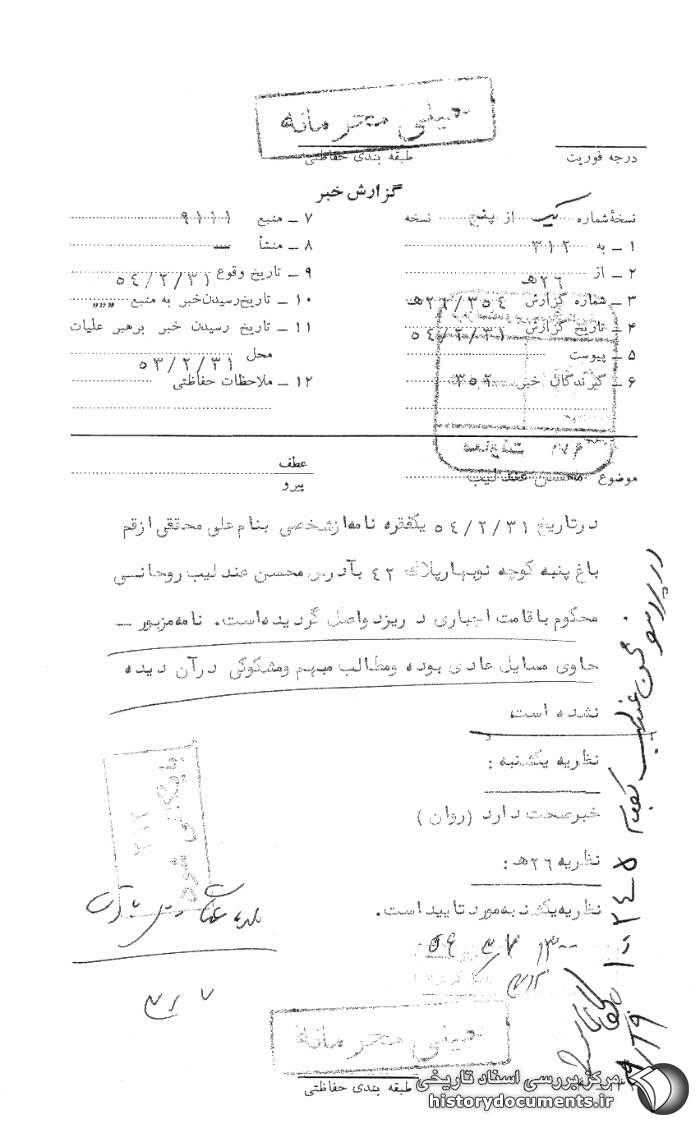 خیلی محرمانه
طبقه بندی حفاظتی
درجه فوریت
گزارش خبر
نسخهٔ شماره یک از پنج نسخه
۱ ـ به ۳۱۲
۲ ـ از ۲۶ ه‍
۳ ـ شماره گزارش ۲۶ ه‍/۳۵۴
۴ ـ تاریخ گزارش ۵۴/۲/۳۱
۵ ـ پیوست
۶ ـ گیرندگان خبر ۳۵۲
۷ ـ منبع ۹۱۱۱
۸ ـ منشأ ـ
۹ ـ تاریخ وقوع ۵۴/۲/۳۱
۱۰ ـ تاریخ رسیدن خبر به منبع """
۱۱ ـ تاریخ رسیدن خبر برهبر عملیات
محل ۵۳/۲/۳۱
۱۲ ـ ملاحظات حفاظتی
عطف
پیرو
موضوع محسن عندلیب
درتاریخ ۵۴/۲/۳۱ یکفقره نامه ازشخصی بنام علی محققی ازقم
باغ پنبه کوچه نوبهارپلاک ۴۲ بآدرس محسن عندلیب روحانی
محکوم باقامت اجباری د ریزد واصل گردیده است. نامه مزبور ـ
حاوی مسایل عادی بوده ومطالب مبهم ومشکوکی درآن دیده
نشده است
نظریه یکشنبه :
خبرصحت دارد (روان )
نظریه ۲۶ ه‍ :
نظریه یکشنبه مورد تایید است.
بایگانی شود
۳۱۲
در پرونده محسن عندلیب
خیلی محرمانه
طبقه بندی حفاظتی
مرکز بررسی اسناد تاریخی
historydocuments.ir